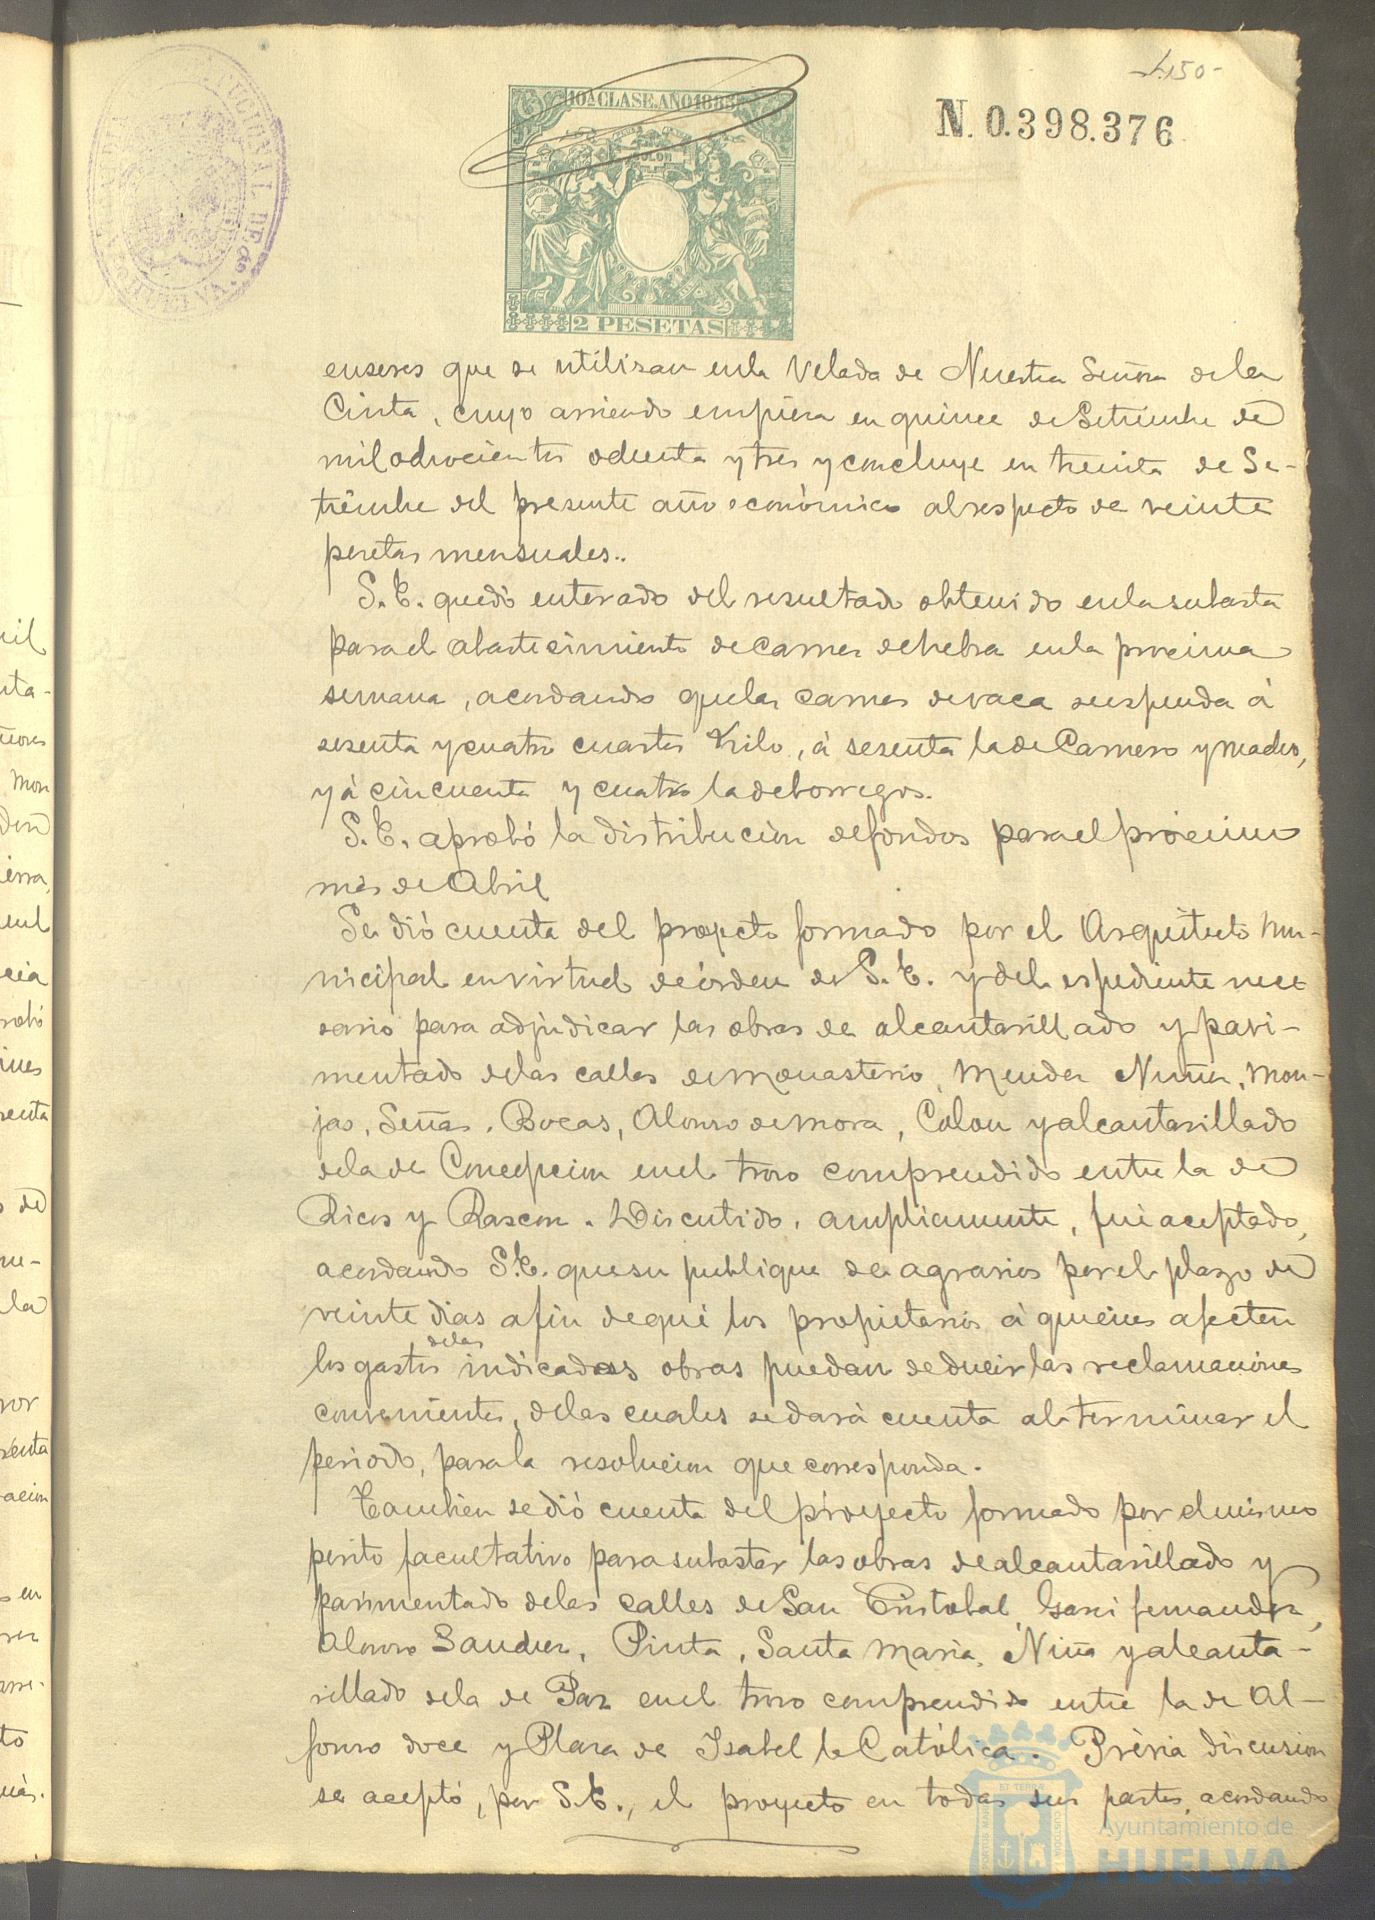 150-
10ª CLASE. AÑO 1883
N. 0.398.376
COLON
EUROPA
2 PESETAS
enseres que se utilizan enla Velada de Nuestra Señora dela
Cinta, cuyo arriendo empieza en quince de Setiembre de
mil ochocientos ochenta y tres y concluye en treinta de Se-
tiembre del presente año económico al respecto de veinte
pesetas mensuales..
S. E. quedó enterado del resultado obtenido enla subasta
para el abastecimiento de carnes de hebra enla procima
semana, acordando quelas carnes de vaca se espenda á
sesenta y cuatro cuartos Kilo, á sesenta la de Carnero y macho,
y á cincuenta y cuatro la de borregos.
S. E. aprobó la distribucion de fondos para el prócimo
mes de Abril
Se dió cuenta del proyecto formado por el Arquitecto Mu-
nicipal en virtud de órden de S. E. y del espediente nece
sario para adjudicar las obras de alcantarillado y pavi-
mentado delas calles de Monasterio, Mendez Nuñez, Mon-
jas, Señas, Bocas, Alonso de Mora, Colon y alcantarillado
dela de Concepcion enel trozo comprendido entre la de
Ricos y Rascon. Discutido, ampliamente, fué aceptado,
acordando S. E. que su publique de agrarios por el plazo de
veinte dias a fin de que los propietarios á quienes afecten
los gastos delas indicadas obras puedan deducir las reclamaciones
convenientes, delas cuales se dará cuenta al terminar el
periodo, para la resolucion que corresponda.
Tambien se dió cuenta del proyecto formado por el mismo
perito facultativo para subastar las obras de alcantarillado y
pavimentado delas calles de San Cristobal, Garci fernandez,
Alonso Sanchez, Pinta, Santa Maria, Niña y alcanta-
rillado dela de Paz enel trozo comprendido entre la de Al-
fonso doce y Plaza de Isabel la Católica. Prévia discusion
se aceptó, por S. E., el proyecto en todas sus partes, acordando
Ayuntamiento de
HUELVA